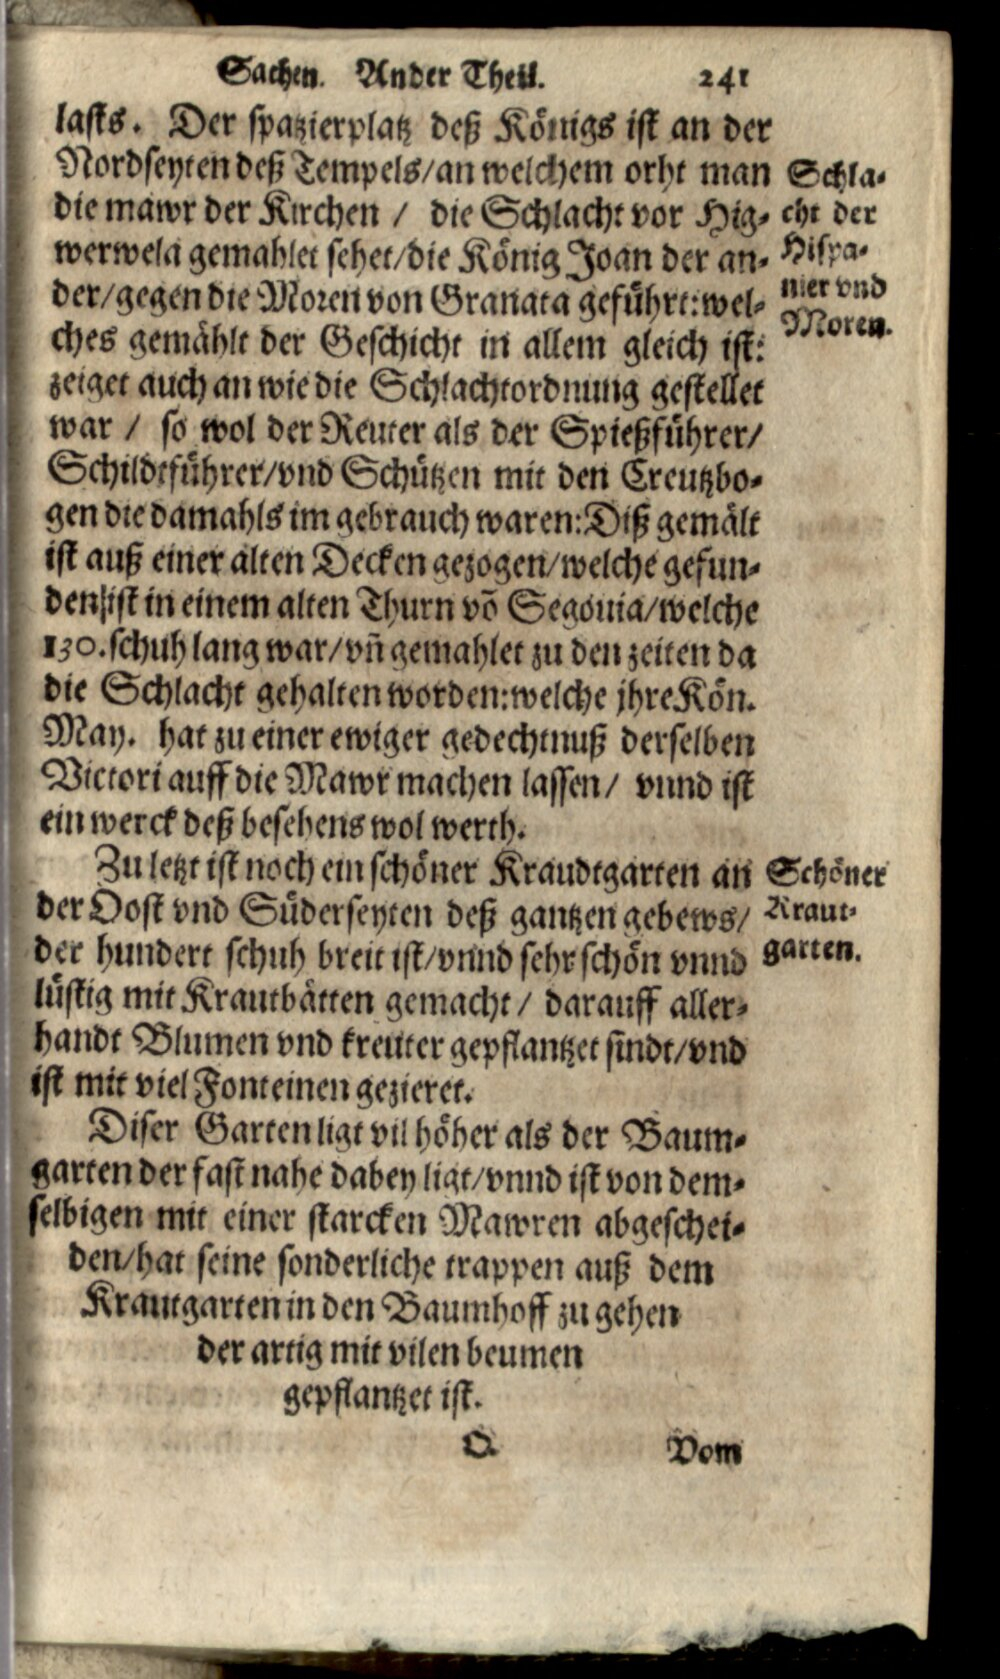 Sachen. Ander Theil. 241
lasts. Der spatzierplatz deß Königs ist an der
Nordseyten deß Tempels/an welchem orht man
die mawr der Kirchen / die Schlacht vor Hig-
werwela gemahlet sehet/die König Joan der an-
der/gegen die Moren von Granata geführt:wel-
ches gemählt der Geschicht in allem gleich ist:
zeiget auch an wie die Schlachtordnung gestellet
war / so wol der Reuter als der Spießführer/
Schildtführer/vnd Schützen mit den Creutzbo-
gen die damahls im gebrauch waren:Diß gemält
ist auß einer alten Decken gezogen/welche gefun-
den ist in einem alten Thurn võ Segouia/welche
130.schuh lang war/vñ gemahlet zu den zeiten da
die Schlacht gehalten worden:welche jhre Kön.
May. hat zu einer ewiger gedechtnuß derselben
Victori auff die Mawr machen lassen/ vnnd ist
ein werck deß besehens wol werth.
Schla-
cht der
Hispa-
nier vnd
Moren.
Zu letzt ist noch ein schöner Kraudtgarten an
der Oost vnd Süderseyten deß gantzen gebews/
der hundert schuh breit ist/vnnd sehr schön vnnd
lüstig mit Krautbätten gemacht/ darauff aller-
handt Blumen vnd kreuter gepflantzet sindt/vnd
ist mit viel Fonteinen gezieret.
Schöner
Kraut-
garten.
Diser Garten ligt vil höher als der Baum-
garten der fast nahe dabey ligt/vnnd ist von dem-
selbigen mit einer starcken Mawren abgeschei-
den/hat seine sonderliche trappen auß dem
Krautgarten in den Baumhoff zu gehen
der artig mit vilen beumen
gepflantzet ist.
Q Vom